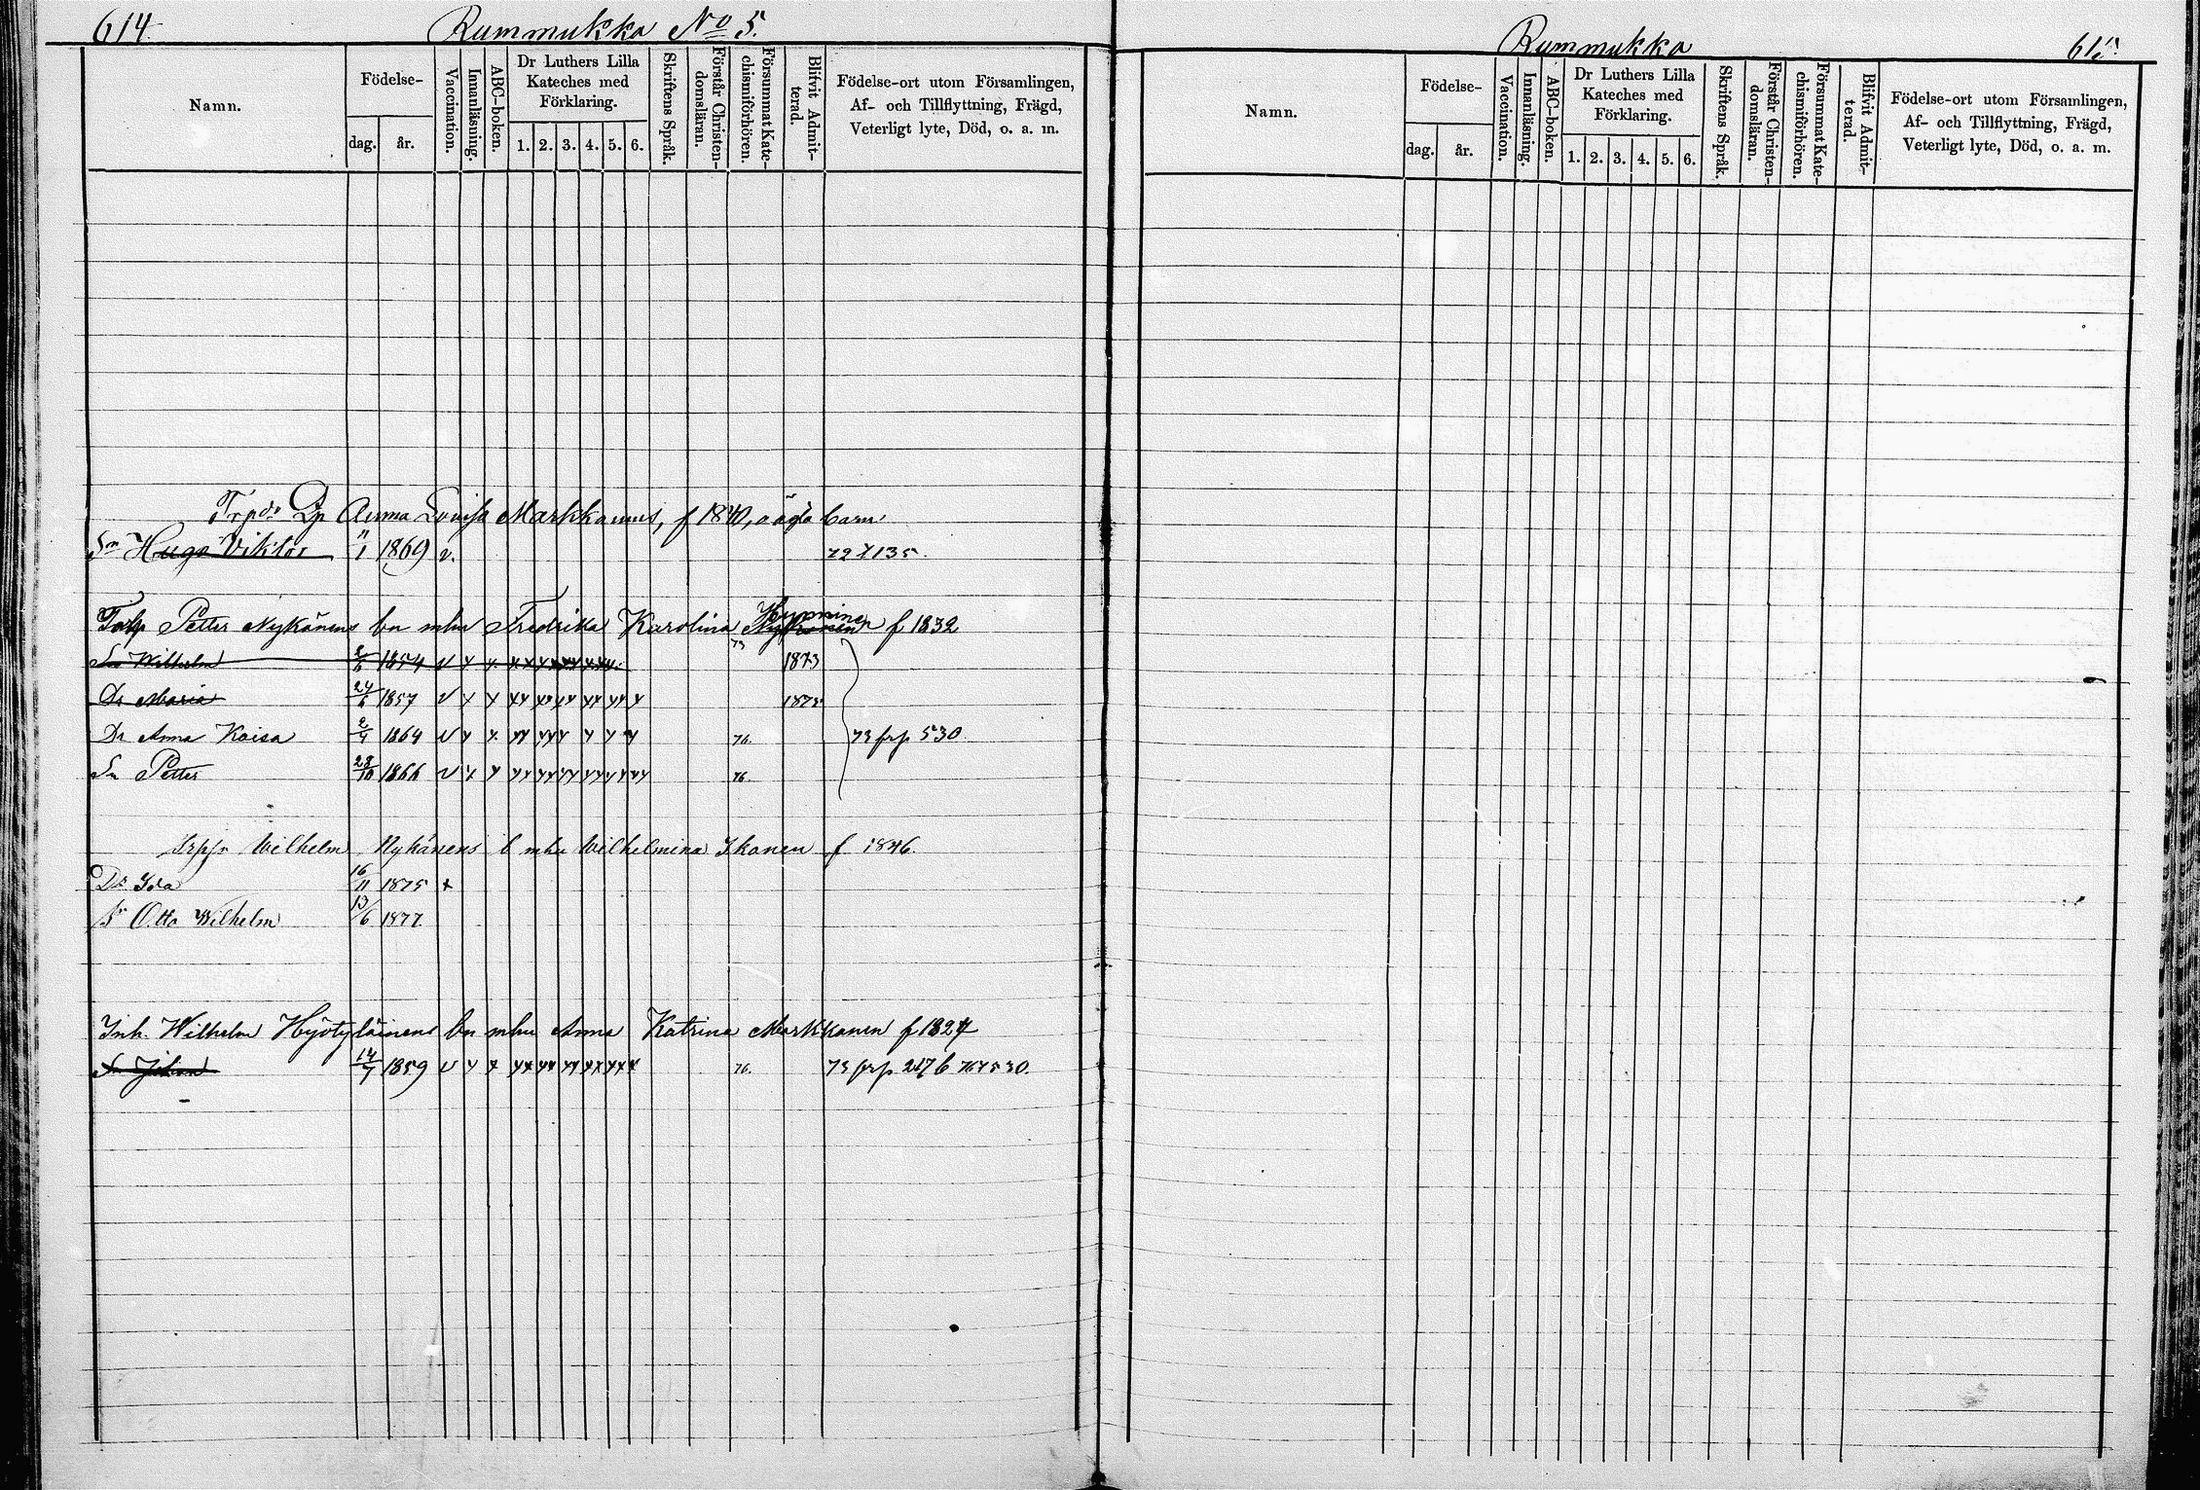 614. Rummukka No 5.
Namn. Födelse- dag. år. Vaccination. Innanläsning. ABC-boken. Dr Luthers Lilla Kateches med Förklaring. 1. 2. 3. 4. 5. 6. Skriftens Språk. Förstår Christendomsläran. Försummat Katechismiförhören. Blifvit Admitterad. Födelse-ort utom Församlingen, Af- och Tillflyttning, Frägd, Veterligt lyte, Död, o. a. m.
Anna Lovisa Markkanens, f 1840, oägta barn
Sn Hugo Viktor 11/1 1869 v. 72 135.
Petter Nykänens bn mhu Fredrika Karolina Hynninen f 1832
Sn Wilhelm 1854 v x x 73 1873
Dr Maria 24/6 1857 v x x 1875
Dr Anna Kaisa 1864 v x x 76. 73 frp 530
Sn Petter 28/10 1866 v x x 76.
Wilhelm Nykänens b mhu Wilhelmina Ikonen f 1846.
Dr Ida 16/11 1875 x
Sn Otto Wilhelm 13/6 1877.
Inh. Wilhelm Hyötyläinens bn mhu Anna Katrina Markkanen f 1824
Sn Johan 14/7 1859 v x x 76. 73 frp 530.
Rummukka 615.
Namn. Födelse- dag. år. Vaccination. Innanläsning. ABC-boken. Dr Luthers Lilla Kateches med Förklaring. 1. 2. 3. 4. 5. 6. Skriftens Språk. Förstår Christendomsläran. Försummat Katechismiförhören. Blifvit Admitterad. Födelse-ort utom Församlingen, Af- och Tillflyttning, Frägd, Veterligt lyte, Död, o. a. m.